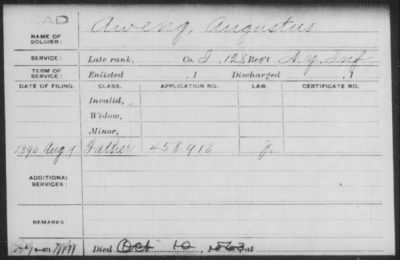 AD
NAME OF SOLDIER: Aweng, Augustus
SERVICE: Late rank, Co. I, 128 Reg't N.Y. Inf
TERM OF SERVICE: Enlisted , 1 Discharged , 1
DATE OF FILING. CLASS. APPLICATION NO. LAW. CERTIFICATE NO.
Invalid,
Widow,
Minor,
1890 Aug 9 Father 458.916
ADDITIONAL SERVICES:
REMARKS:
Died Oct 10, 1863 at